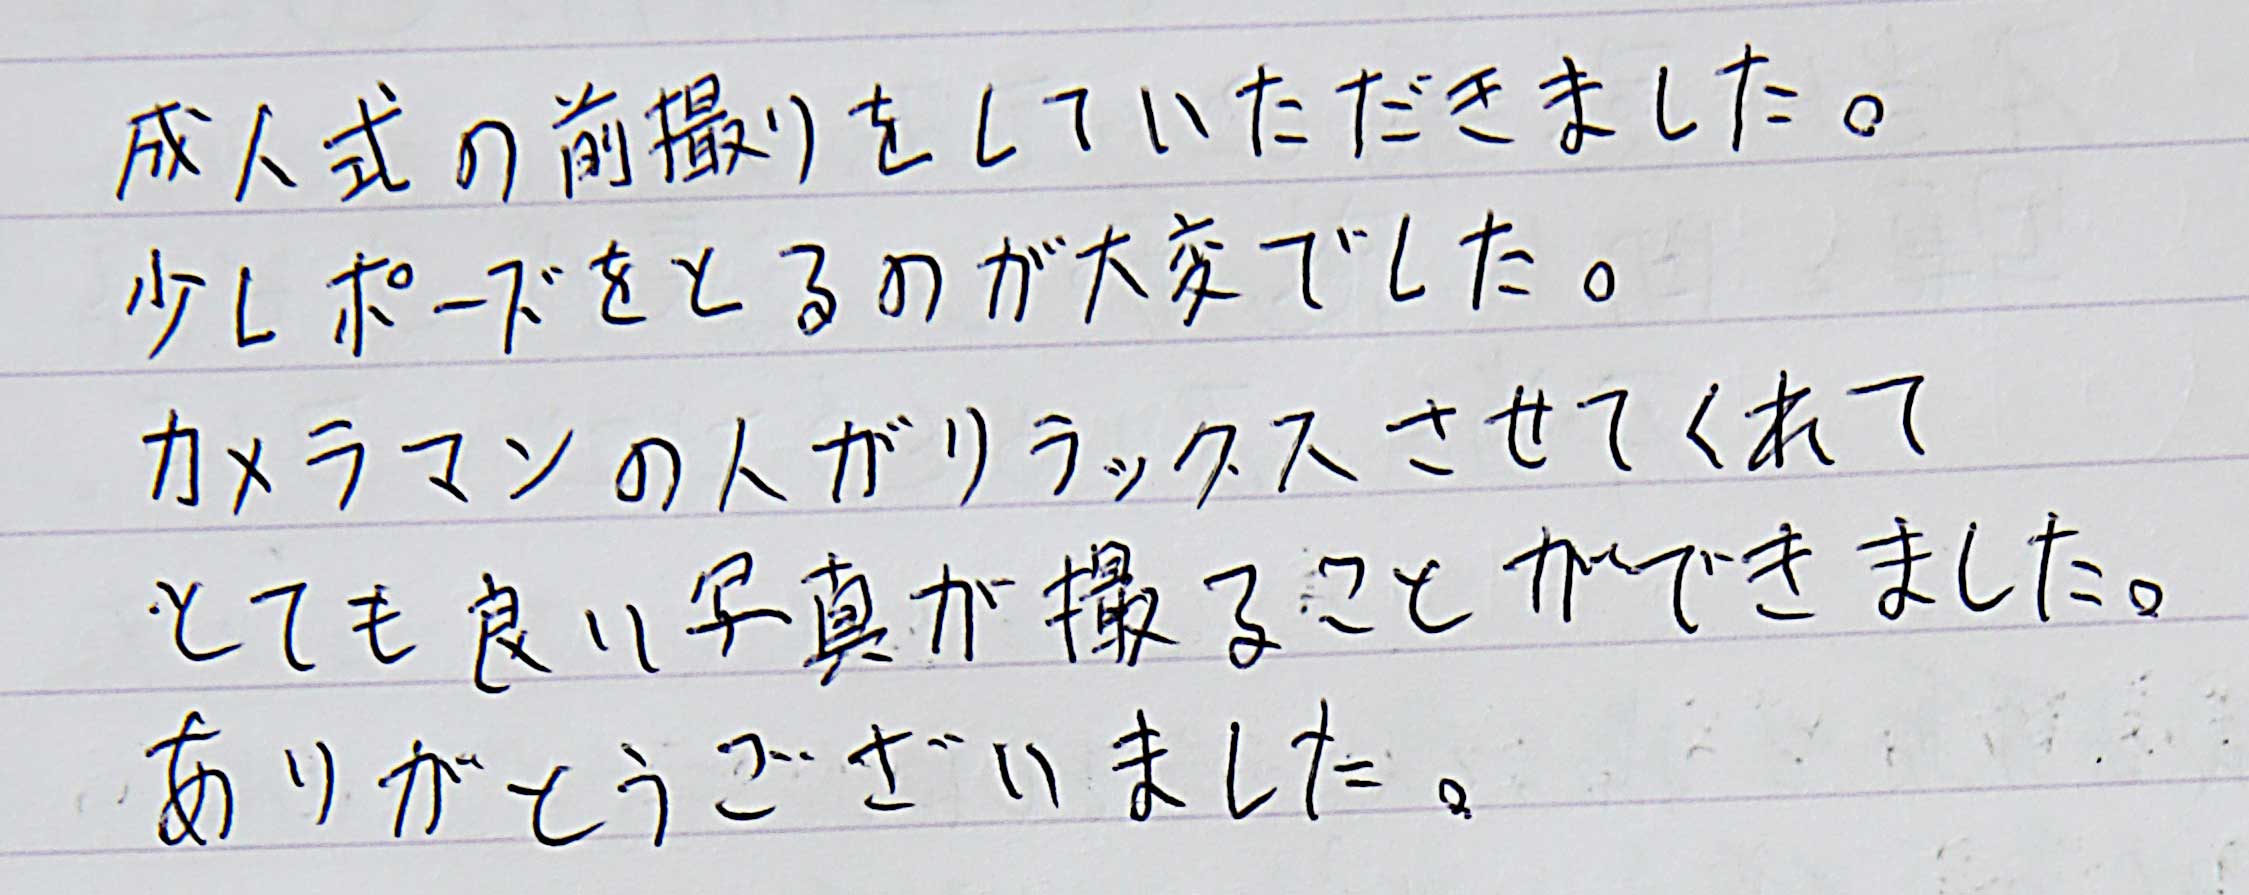 成人式の前撮りをしていただきました。
少しポーズをとるのが大変でした。
カメラマンの人がリラックスさせてくれて
とても良い写真が撮ることができました。
ありがとうございました。